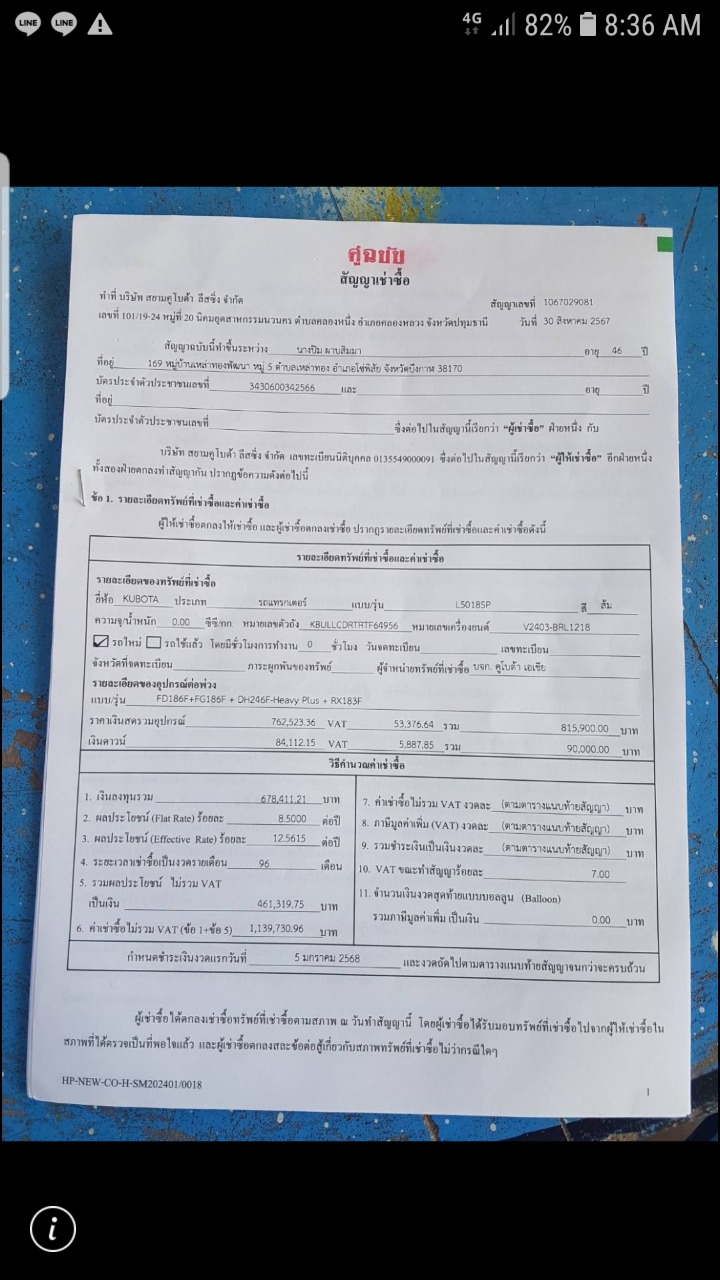 LINE LINE 4G 82% 8:36 AM
คู่ฉบับ
สัญญาเช่าซื้อ
ทำที่ บริษัท สยามคูโบต้า ลีสซิ่ง จำกัด สัญญาเลขที่ 1067029081
เลขที่ 101/19-24 หมู่ที่ 20 นิคมอุตสาหกรรมนวนคร ตำบลคลองหนึ่ง อำเภอคลองหลวง จังหวัดปทุมธานี วันที่ 30 สิงหาคม 2567
สัญญาฉบับนี้ทำขึ้นระหว่าง นางปิม ผาบสิมมา อายุ 46 ปี
ที่อยู่ 169 หมู่บ้านเหล่าทองพัฒนา หมู่ 5 ตำบลเหล่าทอง อำเภอโซ่พิสัย จังหวัดบึงกาฬ 38170
บัตรประจำตัวประชาชนเลขที่ 3430600342566 และ อายุ ปี
ที่อยู่
บัตรประจำตัวประชาชนเลขที่ ซึ่งต่อไปในสัญญานี้เรียกว่า "ผู้เช่าซื้อ" ฝ่ายหนึ่ง กับ
บริษัท สยามคูโบต้า ลีสซิ่ง จำกัด เลขทะเบียนนิติบุคคล 0135549000091 ซึ่งต่อไปในสัญญานี้เรียกว่า "ผู้ให้เช่าซื้อ" อีกฝ่ายหนึ่ง
ทั้งสองฝ่ายตกลงทำสัญญากัน ปรากฏข้อความดังต่อไปนี้
ข้อ 1. รายละเอียดทรัพย์ที่เช่าซื้อและค่าเช่าซื้อ
ผู้ให้เช่าซื้อตกลงให้เช่าซื้อ และผู้เช่าซื้อตกลงเช่าซื้อ ปรากฏรายละเอียดทรัพย์ที่เช่าซื้อและค่าเช่าซื้อดังนี้
รายละเอียดทรัพย์ที่เช่าซื้อและค่าเช่าซื้อ
รายละเอียดของทรัพย์ที่เช่าซื้อ
ยี่ห้อ KUBOTA ประเภท รถแทรกเตอร์ แบบ/รุ่น L5018SP สี ส้ม
ความจุ/น้ำหนัก 0.00 ซีซี/กก. หมายเลขตัวถัง KBULLCDRTRTF64956 หมายเลขเครื่องยนต์ V2403-BRL1218
รถใหม่ รถใช้แล้ว โดยมีชั่วโมงการทำงาน 0 ชั่วโมง วันจดทะเบียน เลขทะเบียน
จังหวัดที่จดทะเบียน ภาระผูกพันของทรัพย์ ผู้จำหน่ายทรัพย์ที่เช่าซื้อ บจก. คูโบต้า เอเชีย
รายละเอียดของอุปกรณ์ต่อพ่วง
แบบ/รุ่น FD186F+FG186F + DH246F-Heavy Plus + RX183F
ราคาเงินสดรวมอุปกรณ์ 762,523.36 VAT 53,376.64 รวม 815,900.00 บาท
เงินดาวน์ 84,112.15 VAT 5,887.85 รวม 90,000.00 บาท
วิธีคำนวณค่าเช่าซื้อ
1. เงินลงทุนรวม 678,411.21 บาท
2. ผลประโยชน์ (Flat Rate) ร้อยละ 8.5000 ต่อปี
3. ผลประโยชน์ (Effective Rate) ร้อยละ 12.5615 ต่อปี
4. ระยะเวลาเช่าซื้อเป็นงวดรายเดือน 96 เดือน
5. รวมผลประโยชน์ ไม่รวม VAT
เป็นเงิน 461,319.75 บาท
6. ค่าเช่าซื้อไม่รวม VAT (ข้อ 1+ข้อ 5) 1,139,730.96 บาท
7. ค่าเช่าซื้อไม่รวม VAT งวดละ (ตามตารางแนบท้ายสัญญา) บาท
8. ภาษีมูลค่าเพิ่ม (VAT) งวดละ (ตามตารางแนบท้ายสัญญา) บาท
9. รวมชำระเงินเป็นเงินงวดละ (ตามตารางแนบท้ายสัญญา) บาท
10. VAT ขณะทำสัญญาร้อยละ 7.00
11. จำนวนเงินงวดสุดท้ายแบบบอลลูน (Balloon)
รวมภาษีมูลค่าเพิ่ม เป็นเงิน 0.00 บาท
กำหนดชำระเงินงวดแรกวันที่ 5 มกราคม 2568 และงวดถัดไปตามตารางแนบท้ายสัญญาจนกว่าจะครบถ้วน
ผู้เช่าซื้อได้ตกลงเช่าซื้อทรัพย์ที่เช่าซื้อตามสภาพ ณ วันทำสัญญานี้ โดยผู้เช่าซื้อได้รับมอบทรัพย์ที่เช่าซื้อไปจากผู้ให้เช่าซื้อใน
สภาพที่ได้ตรวจเป็นที่พอใจแล้ว และผู้เช่าซื้อตกลงสละข้อต่อสู้เกี่ยวกับสภาพทรัพย์ที่เช่าซื้อไม่ว่ากรณีใดๆ
HP-NEW-CO-H-SM202401/0018 1